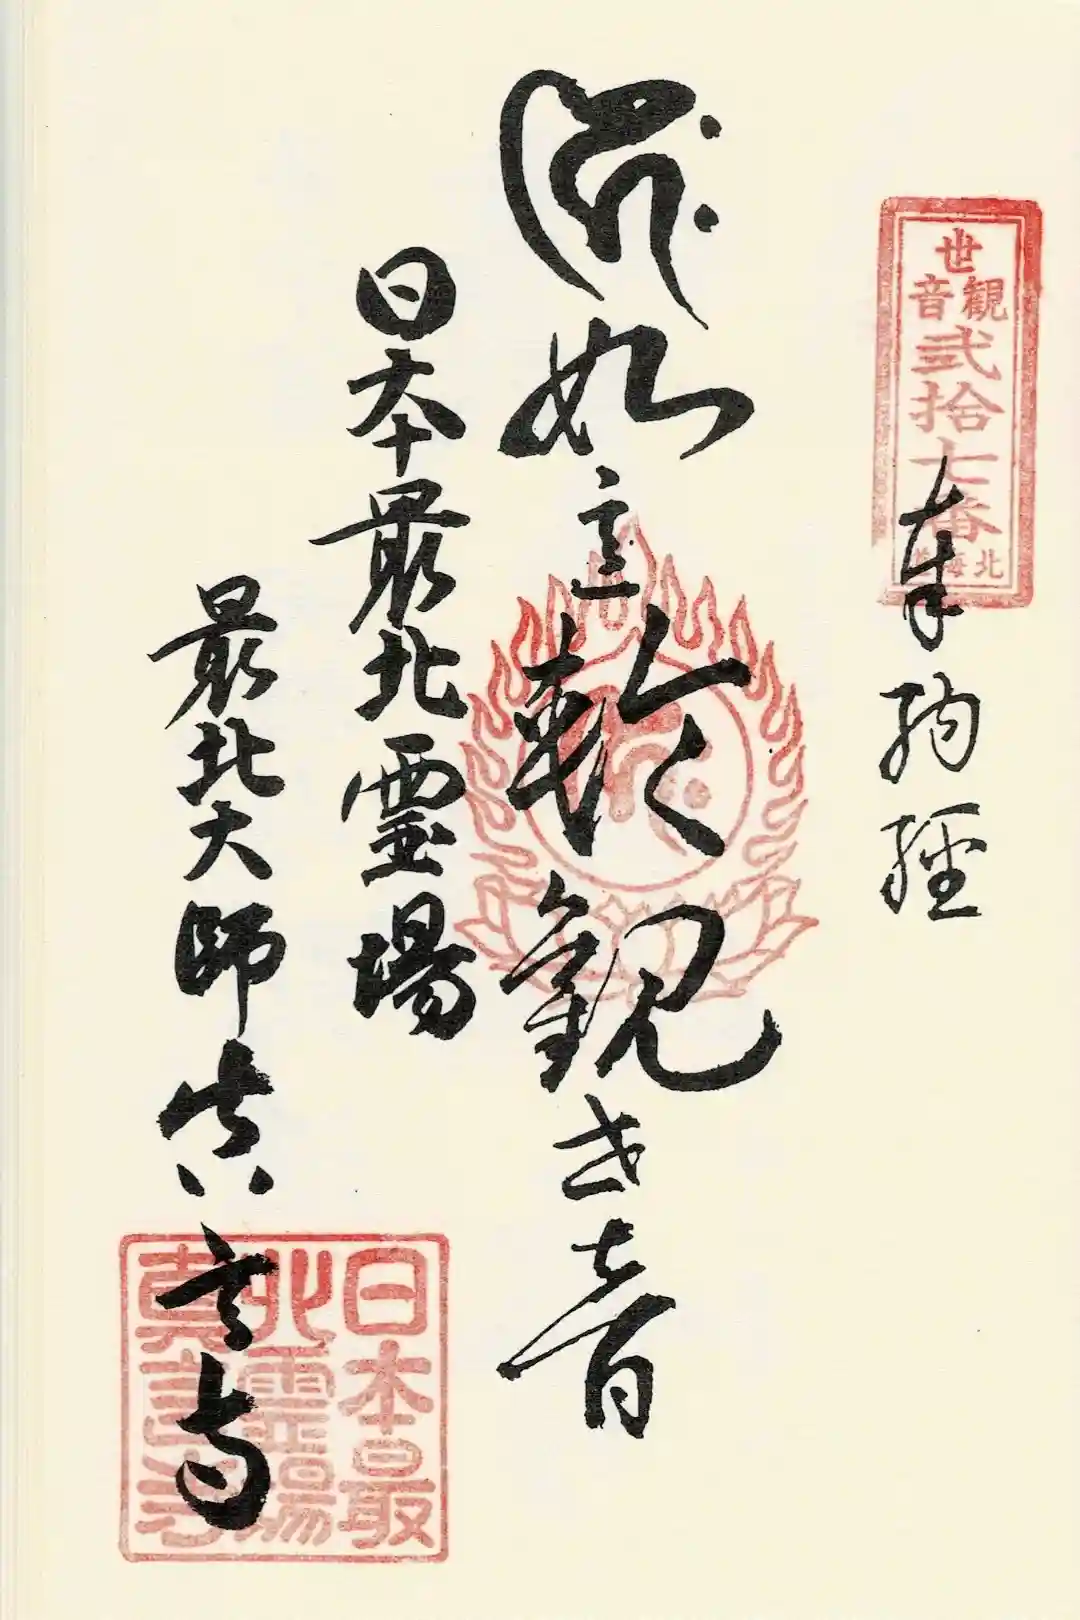 世
観音
弐拾七番
北海道
奉拘経
如意輪観世音
日本最北霊場
最北大師真言寺
日本最
北霊場
真言寺